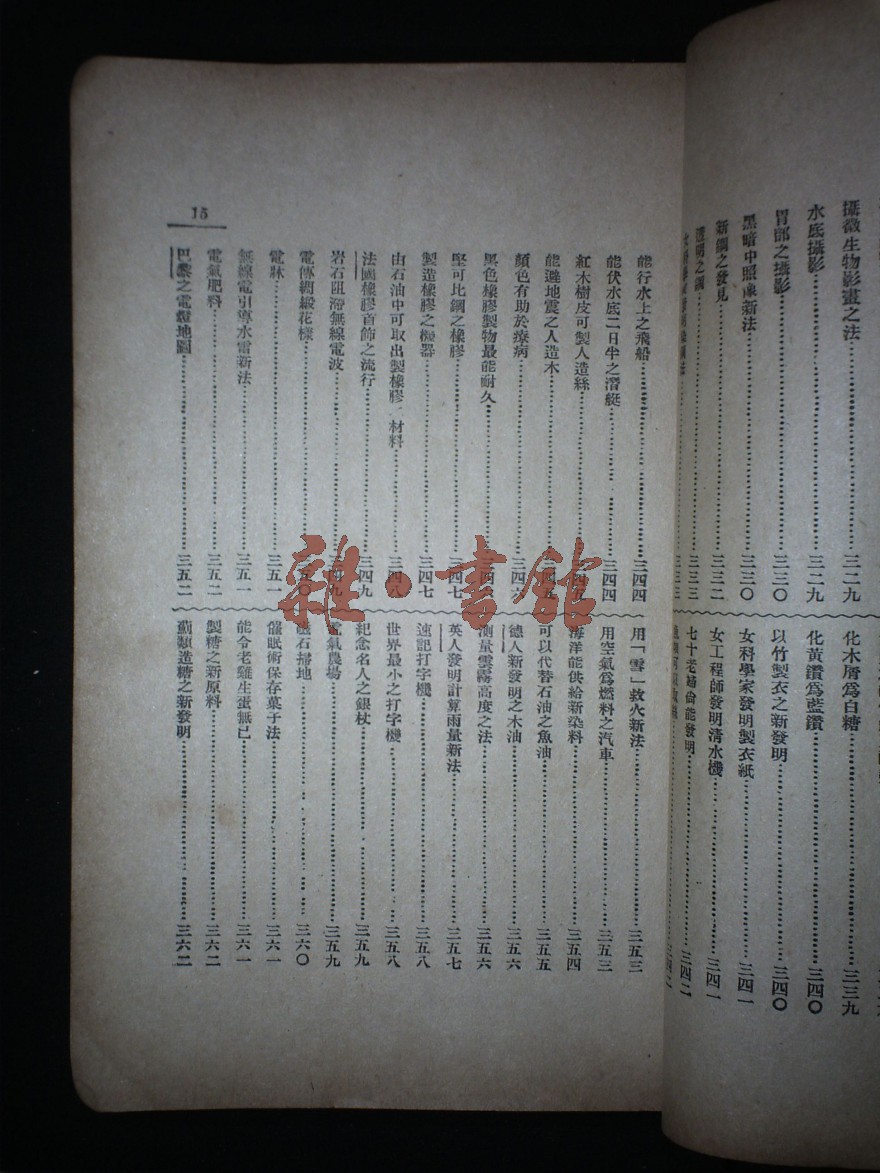 攝微生物影畫之法……三二九
水底攝影……三二九
胃部之攝影……三三〇
黑暗中照像新法……三三〇
新鋼之發見……三三二
透明之鋼……三三三
化木屑爲白糖……三三九
化黃鑽爲藍鑽……三四〇
以竹製衣之新發明……三四〇
女科學家發明製衣紙……三四一
女工程師發明清水機……三四一
七十老婦尙能發明……三四二
15
能行水上之飛船……三四四
能伏水底二日半之潛艇……三四四
紅木樹皮可製人造絲……三四五
能避地震之人造木……三四五
顏色有助於療病……三四六
黑色橡膠製物最能耐久……三四六
堅可比鋼之橡膠……三四七
製造橡膠之機器……三四七
由石油中可取出製橡膠ノ材料……三四八
法國橡膠首飾之流行……三四九
岩石阻滯無線電波……三四九
電傳綢緞花樣……三五〇
電牀……三五一
無線電引導水雷新法……三五一
電氣肥料……三五二
巴黎之電燈地圖……三五二
用「雪」救火新法……三五三
用空氣爲燃料之汽車……三五三
海洋能供給新染料……三五四
可以代替石油之魚油……三五五
德人新發明之木油……三五六
測量雲霧高度之法……三五六
英人發明計算雨量新法……三五七
速記打字機……三五八
世界最小之打字機……三五八
紀念名人之銀杖……三五九
電氣農場……三五九
磁石掃地……三六〇
催眠術保存菓子法……三六一
能令老雞生蛋無已……三六一
製糖之新原料……三六二
薊類造糖之新發明……三六二
雜·書館